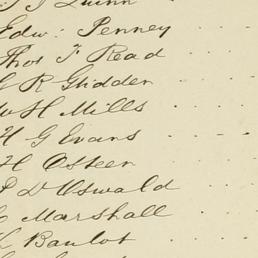 J Quinn
Edw: Penney
Thos F Read
G R Glidden
W H Mills
H G Evans
H Osteen
P D Oswald
Marshall
Baulot